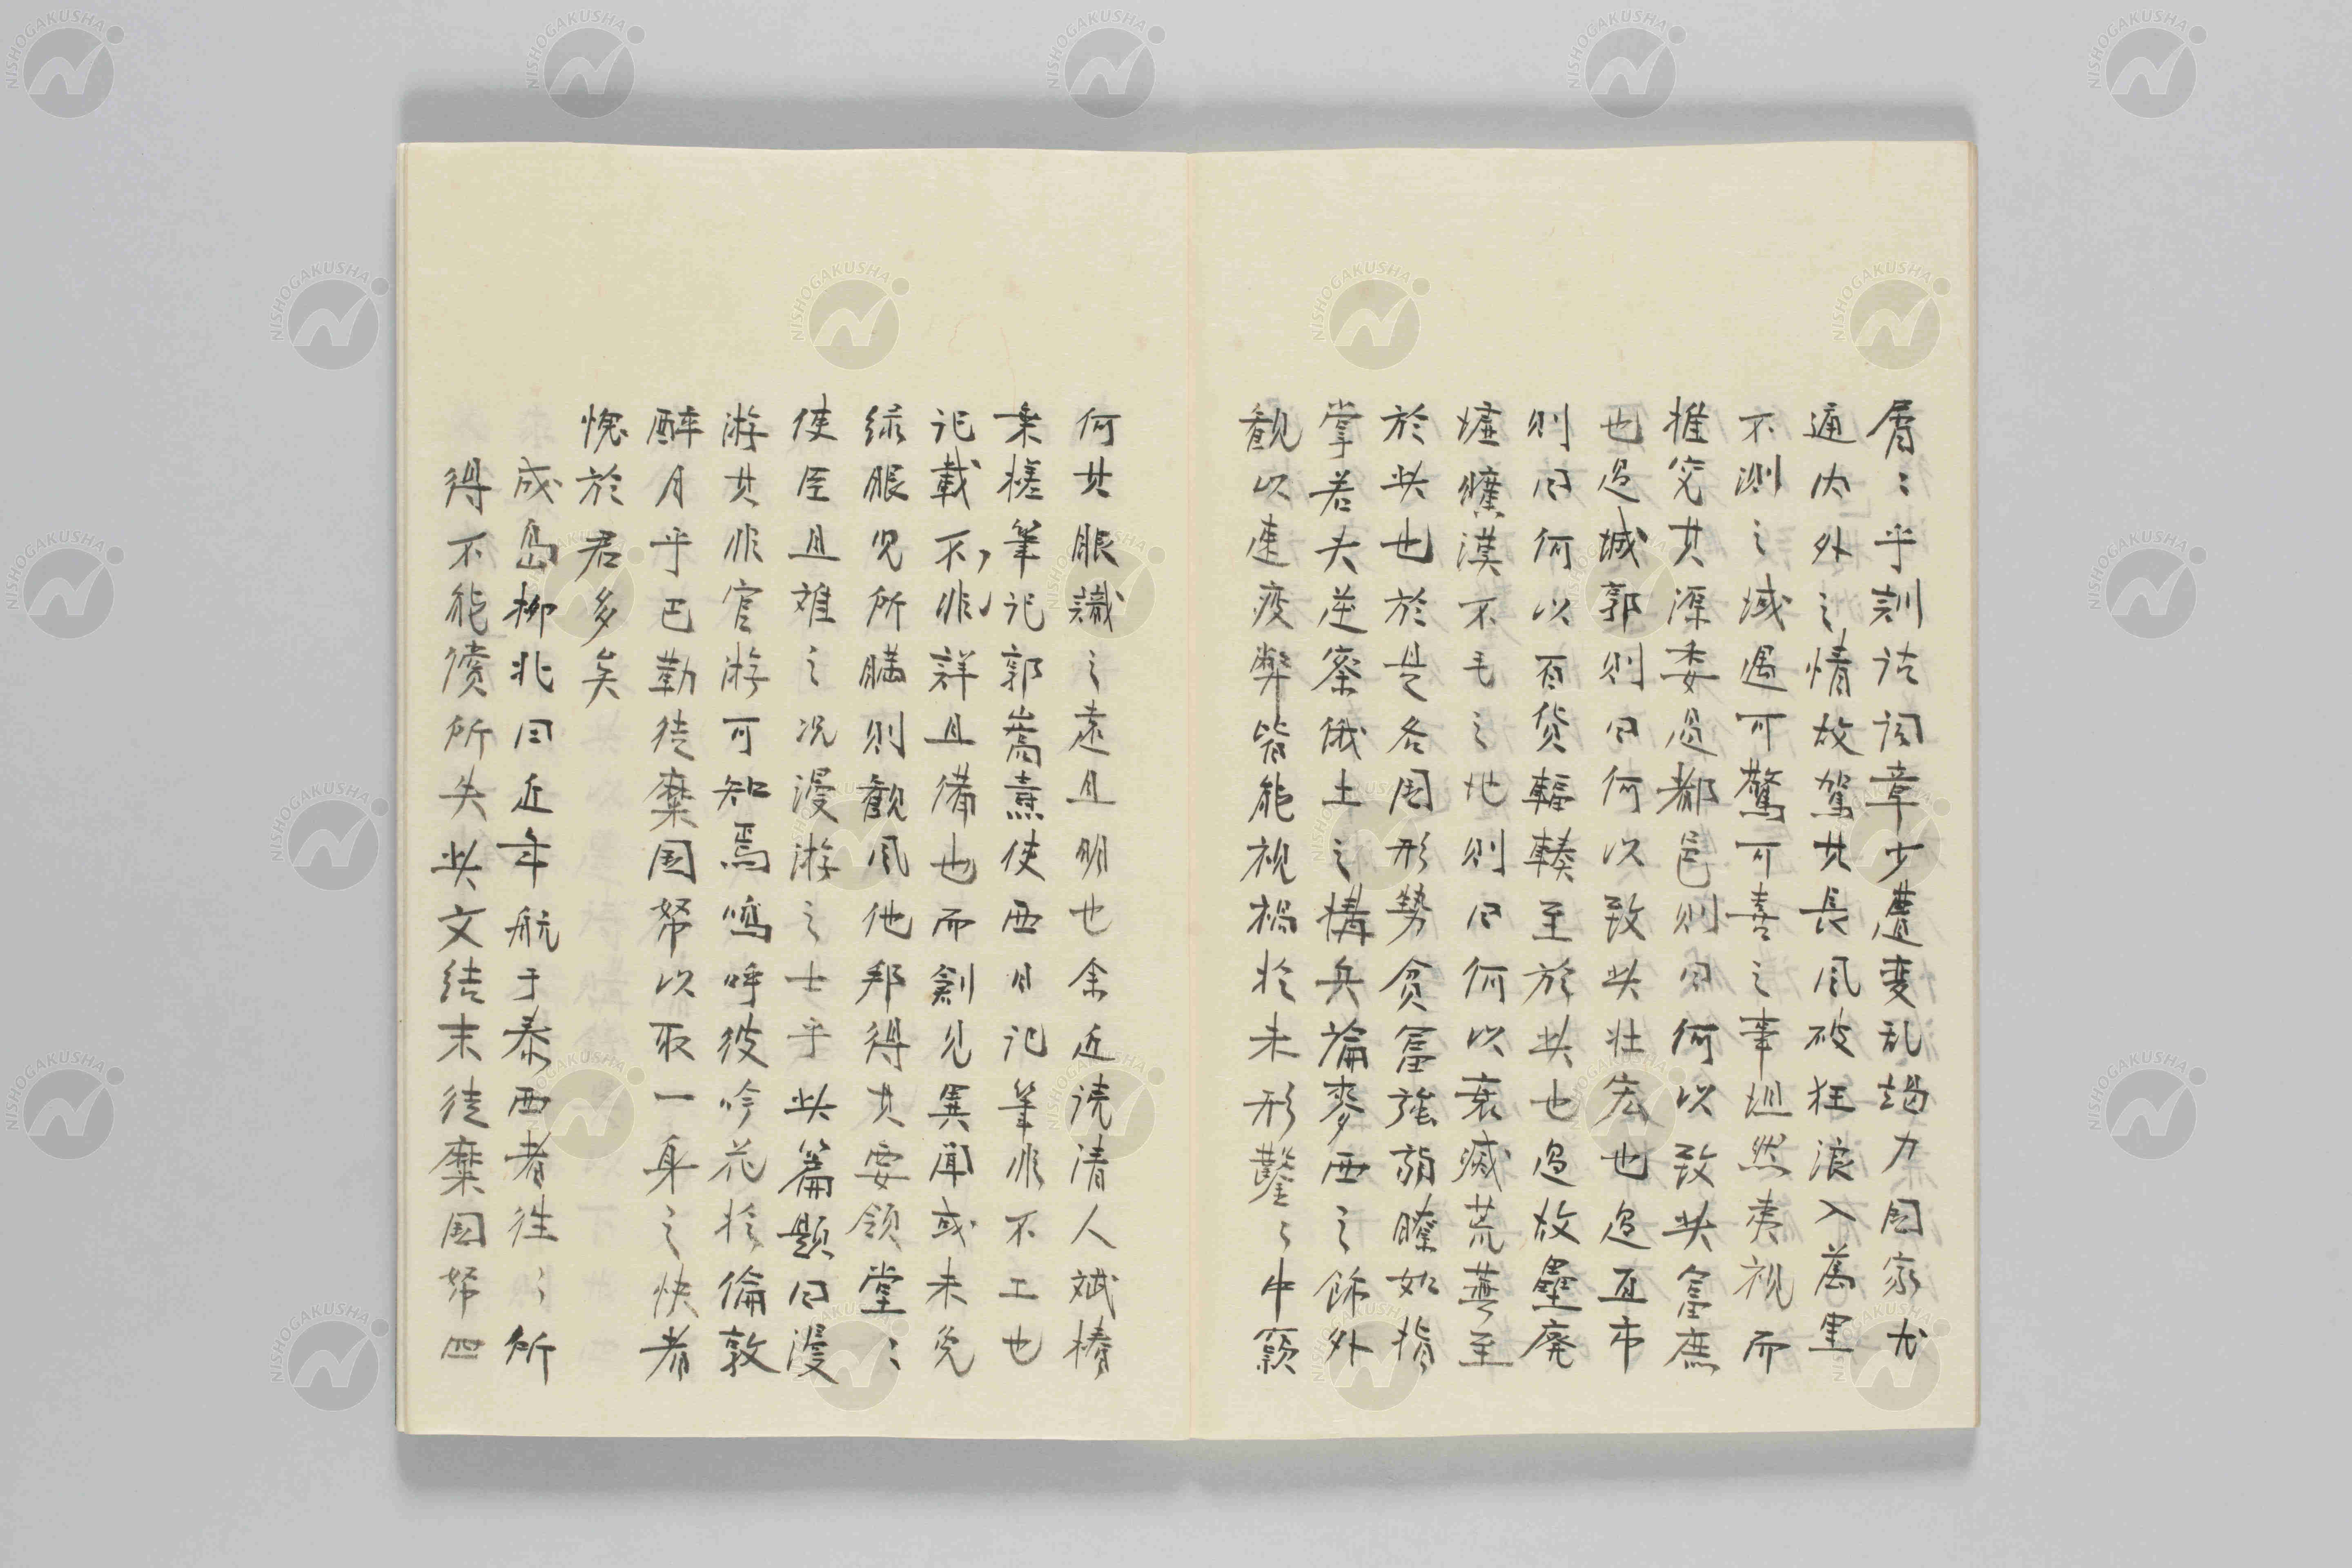 屑〻乎訓詁詞章少遭变乱竭力国家尤
通内外之情故駕其長風破狂浪入萬里
不測之域遇可驚可喜之事逌然夷視而
推究其源委過都邑則曰何以致此富庶
也過城郭則曰何以致此壮宏也過互市
則曰何以百貨輻輳至於此也過故壘廃
墟曠漠不毛之地則曰何以衰滅荒蕪至
於此也於是各国形勢貧富強弱瞭如指
掌若夫逆察俄土之搆兵論麥西之飾外
観以速疲弊皆能視禍於未形鑿〻中窾
何其眼識之遠且明也余近読清人斌椿
乗槎筆記郭嵩燾使西日記筆非不工也
記載不非詳且備也而創見異聞或未免
緑眼児所瞞則観風他邦得其要領堂〻
使臣且难之况漫游之士乎此篇題曰漫
游其非官游可知焉嗚呼彼吟花於倫敦
醉月乎巴勒徒糜国帑以取一身之快者
愧於君多矣
成島柳北曰近年航于泰西者往〻所
得不能償所失此文結末徒糜国帑四